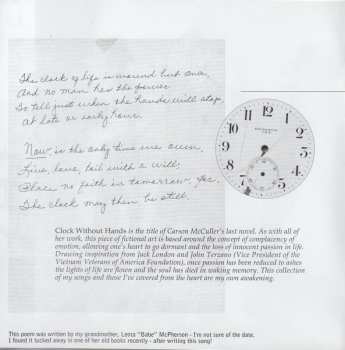 The clock of life is wound but once,
And no man has the power
To tell just when the hands will stop,
At late or early hour.
Now is the only time we own,
Live, love, toil with a will;
Place no faith in tomorrow, for
The clock may then be still.
12 1 2 3 4 5 6 7 8 9 10 11
Clock Without Hands is the title of Carson McCuller's last novel. As with all of
her work, this piece of fictional art is based around the concept of complacency of
emotion, allowing one's heart to go dormant and the loss of innocent passion in life.
Drawing inspiration from Jack London and John Terzano (Vice President of the
Vietnam Veterans of America Foundation), once passion has been reduced to ashes
the lights of life are flown and the soul has died in waking memory. This collection
of my songs and those I've covered from the heart are my own awakening.
This poem was written by my grandmother, Leota "Babe" McPherson - I'm not sure of the date.
I found it tucked away in one of her old books recently - after writing this song!